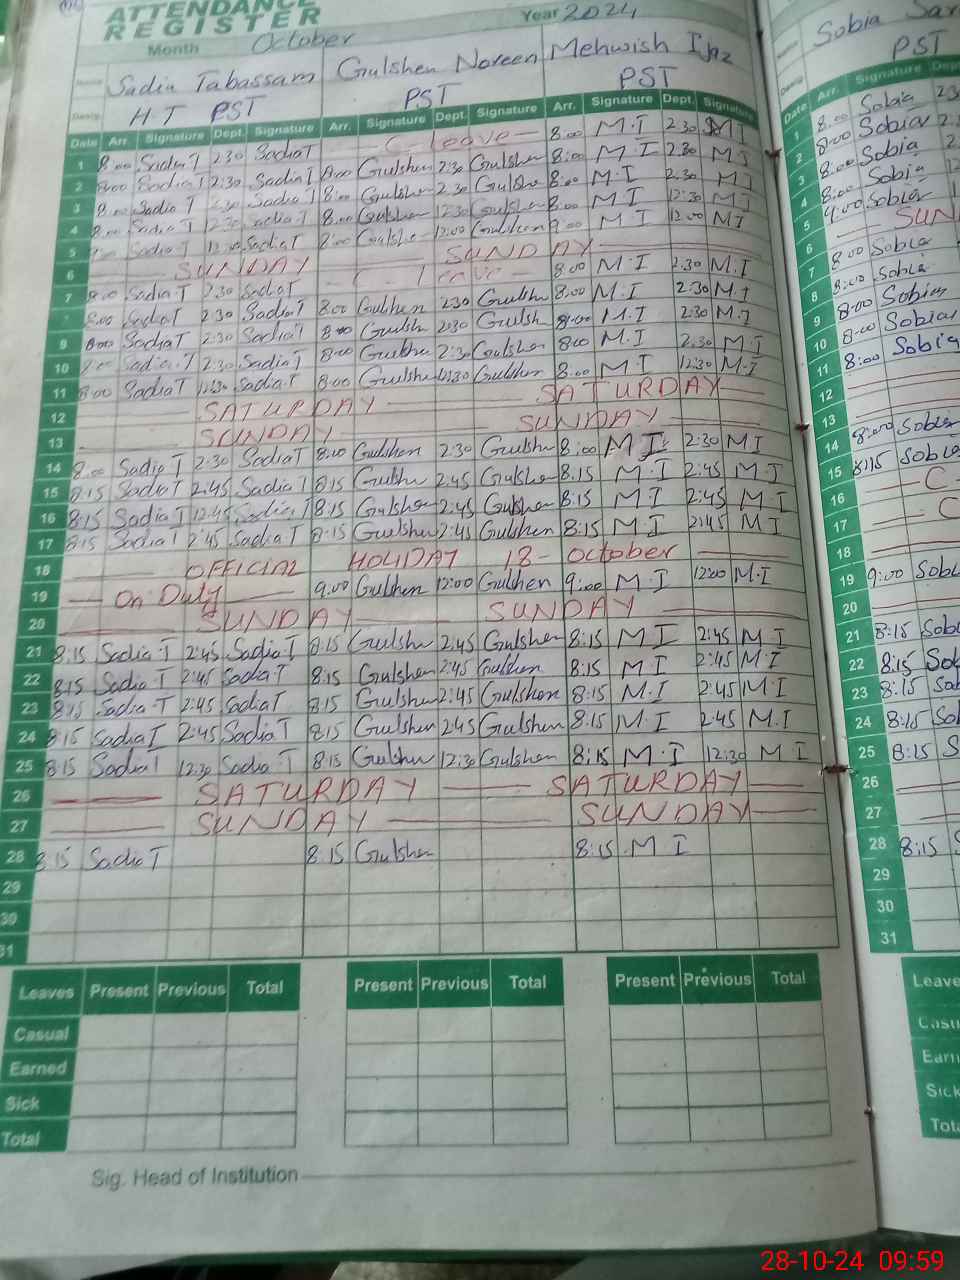 ATTENDANCE
REGISTER
Year 2024
Month October
Sadia Tabassam Gulshen Noreen Mehwish Ijaz
H.T PST PST PST
Date Arr. Signature Dept. Signature Arr. Signature Dept. Signature Arr. Signature Dept. Signature
1 8:00 Sadia T 2:30 Sadia T C leave 8:00 M.I 2:30 M I
2 8:00 Sadia T 2:30 Sadia T 8:00 Gulshen 2:30 Gulshen 8:00 M.I 2:30 M I
3 8:00 Sadia T 2:30 Sadia T 8:00 Gulshen 2:30 Gulshen 8:00 M.I 2:30 M I
4 8:00 Sadia T 12:30 Sadia T 8:00 Gulshen 12:30 Gulshen 8:00 M I 12:30 M I
5 Sadia T 12:00 Sadia T 9:00 Gulshen 12:00 Gulshen 9:00 M I 12:00 M I
6 SUNDAY SUNDAY
7 8:00 Sadia T 2:30 Sadia T C leave 8:00 M.I 2:30 M.I
8:00 Sadia T 2:30 Sadia T 8:00 Gulshen 2:30 Gulshen 8:00 M.I 2:30 M.I
9 8:00 Sadia T 2:30 Sadia T 8:00 Gulshen 2:30 Gulshen 8:00 M.I 2:30 M.I
10 Sadia T 2:30 Sadia T 8:00 Gulshen 2:30 Gulshen 8:00 M.I 2:30 M.I
11 8:00 Sadia T 12:30 Sadia T 8:00 Gulshen 12:30 Gulshen 8:00 M.I 12:30 M.I
12 SATURDAY SATURDAY
13 SUNDAY SUNDAY
14 8:00 Sadia T 2:30 Sadia T 8:00 Gulshen 2:30 Gulshen 8:00 M I 2:30 M I
15 8:15 Sadia T 2:45 Sadia T 8:15 Gulshen 2:45 Gulshen 8:15 M.I 2:45 M I
16 8:15 Sadia T 2:45 Sadia T 8:15 Gulshen 2:45 Gulshen 8:15 M I 2:45 M I
17 8:15 Sadia T 2:45 Sadia T 8:15 Gulshen 2:45 Gulshen 8:15 M.I 2:45 M I
18 OFFICIAL HOLIDAY 18- October
19 On Duty 9:00 Gulshen 12:00 Gulshen 9:00 M I 12:00 M.I
20 SUNDAY SUNDAY
21 8:15 Sadia T 2:45 Sadia T 8:15 Gulshen 2:45 Gulshen 8:15 M I 2:45 M I
22 8:15 Sadia T 2:45 Sadia T 8:15 Gulshen 2:45 Gulshen 8:15 M I 2:45 M.I
23 8:15 Sadia T 2:45 Sadia T 8:15 Gulshen 2:45 Gulshen 8:15 M.I 2:45 M.I
24 8:15 Sadia T 2:45 Sadia T 8:15 Gulshen 2:45 Gulshen 8:15 M.I 2:45 M.I
25 8:15 Sadia T 12:30 Sadia T 8:15 Gulshen 12:30 Gulshen 8:15 M.I 12:30 M I
26 SATURDAY SATURDAY
27 SUNDAY SUNDAY
28 8:15 Sadia T 8:15 Gulshen 8:15 M I
29
30
31
Leaves Present Previous Total Present Previous Total Present Previous Total
Casual
Earned
Sick
Total
Sig. Head of Institution
Sobia
PST
Date Arr. Signature
1 8:00 Sobia
2 8:00 Sobia
3 8:00 Sobia
4 8:00 Sobia
5 9:00 Sobia
6
7 8:00 Sobia
8 8:00 Sobia
9 8:00 Sobia
10 8:00 Sobia
11 8:00 Sobia
12
13
14 8:00 Sobia
15 8:15 Sobia
16 C
17 C
18
19 9:00
20
21 8:15
22 8:15
23 8:15
24 8:15
25 8:15
26
27
28 8:15
29
30
31
Sick
28-10-24 09:59